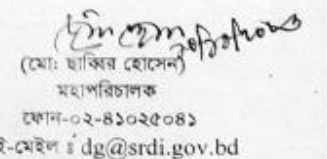 (মোঃ ছাব্বির হোসেন)
মহাপরিচালক
ফোন-০২-৪১০২৫০৪১
ই-মেইল ঃ dg@srdi.gov.bd